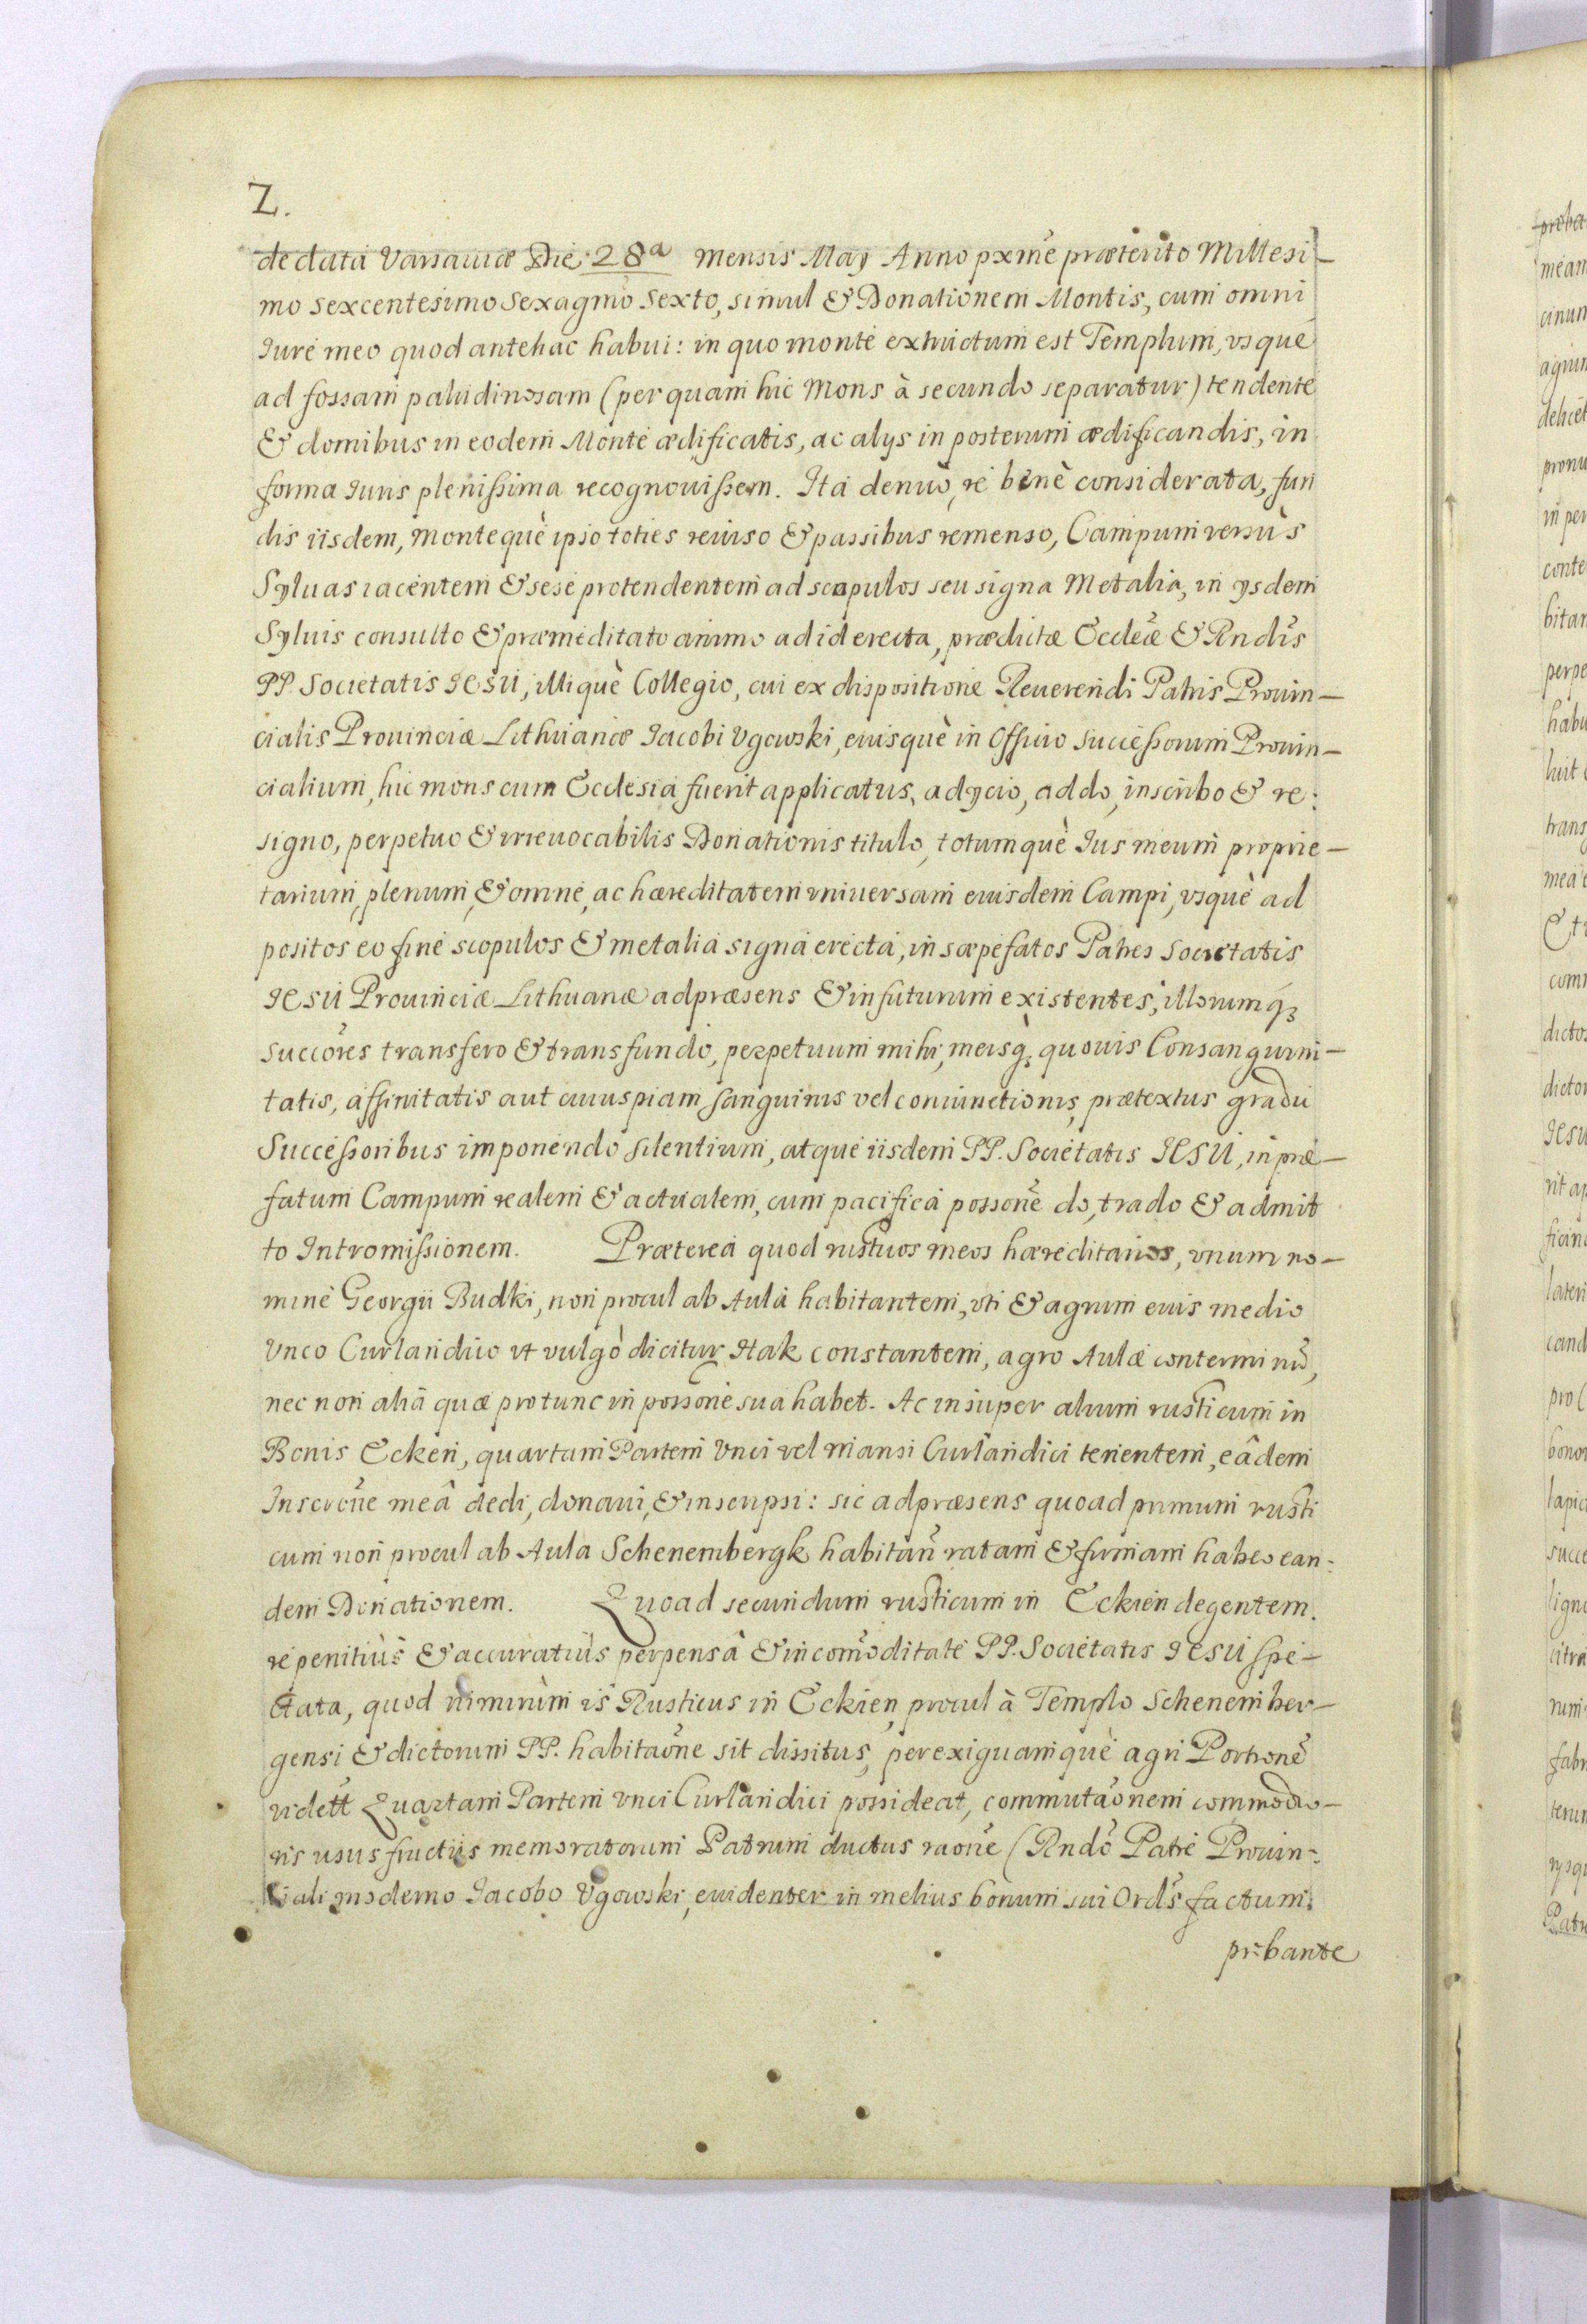 2.
de data Varsauiæ Die 28ª Mensis Maÿ Anno pxmẽ præterito Millesi-
mo sexcentesimo sexagmo sexto, simul & Donationem Montis, cum omni
Iure meo quod antehac habui: in quo monte extructum est Templum, vsque
ad fossam paludinosam (per quam hic Mons à secundo separatur) tendente
& domibus in eodem Monte ædificatis, ac alijs in posterum ædificandis, in
forma Iuris plenissima recognouissem. Ita denuò, re benè considerata, fun
dis iisdem, Montequè ipso toties reuiso & passibus remenso, Campum versùs
Syluas iacentem & sese protendentem ad scopulos seu signa Metalia, in ijsdem
Syluis consulto & præmeditato animo ad id erecta, prædictæ Eccleæ & Rndis
PP. Societatis IESU, illiquè Collegio, cui ex dispositione Reuerendi Patris Prouin-
cialis Prouinciæ Lithuaniæ Iacobi Vgowski, eiusquè in Officio Successorum Prouin-
cialium, hic mons cum Ecclesia fuerit applicatus, adijcio, addo, inscribo & re:
signo, perpetuo & irreuocabilis Donationis titulo, totumquè Ius meum proprie-
tarium, plenum, & omne, ac hæreditatem vniuersam eiusdem Campi, vsquè ad
positos eo fine scopulos & metalia signa erecta, in sæpefatos Patres Societatis
IESU Prouinciæ Lithuanæ ad præsens & in futurum existentes, illorumq;
succores transfero & transfundo, perpetuum mihi, meisq; quouis Consanguini-
tatis, affinitatis aut cuiuspiam sanguinis vel coniunctionis prætextus gradu
Successoribus imponendo silentium, atque iisdem PP. Societatis IESU, in præ-
fatum Campum realem & actualem, cum pacifica possone do, trado & admit
to Intromissionem. Præterea quod rusticos meos hæreditarios, vnum no-
mine Georgii Budki, non procul ab Aula habitantem, vti & agrum eius medio
Vnco Curlandico vt vulgò dicitur Hak constantem, agro Aulæ conterminũ,
nec non alia quæ pro tunc in possone sua habet. Ac insuper alium rusticum in
Bonis Ecken, quartam Partem Vnci vel mansi Curlandici tenentem, eâdem
Inscrone meâ dedi, donaui, & inscripsi: sic ad præsens quoad primum rusti
cum non procul ab Aula Schenembergk habitan ratam & firmam habeo ean:
dem Donationem. Quoad secundum rusticum in Eckien degentem.
re penitiùs & accuratiùs perpensâ & incomoditate PP. Societatis IESU spe-
ctata, quod nimirùm is Rusticus in Eckien procul à Templo Schenember-
gensi & dictorum PP. habitaone sit dissitus, perexiguamquè agri Portionẽ
vidett Quartam Partem vnci Curlandici possideat, commutaonem commodio-
ris usus fructus memoratorum Patrum ductus raone (Rndo Patre Prouin-
ciali moderno Iacobo Vgowski, euidenter in melius bonum sui Ordis factum
probante